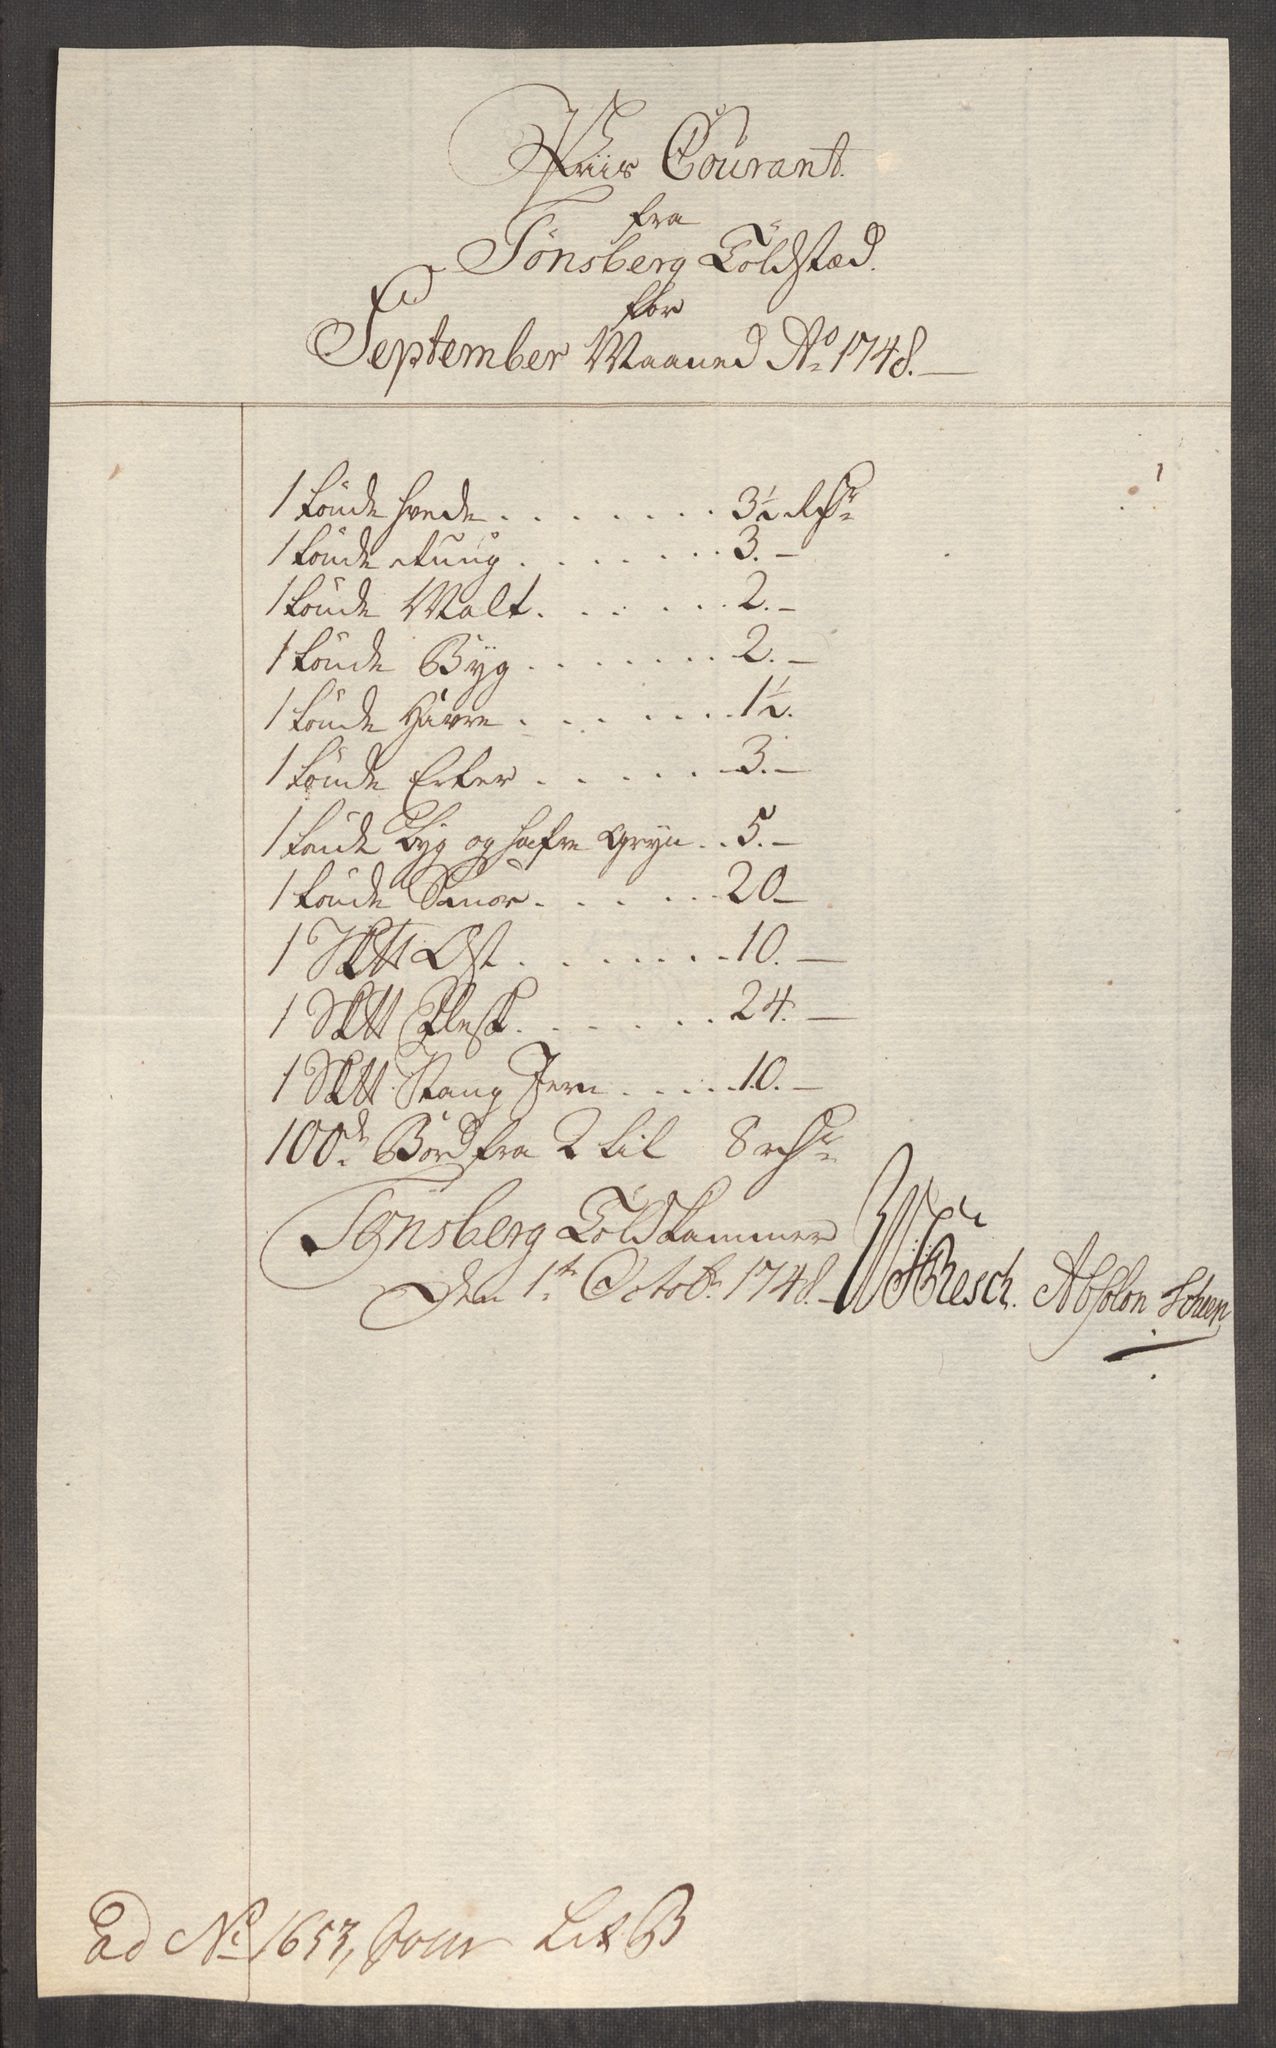 Priis Courant.
fra
Tönsberg Toldstæd.
for
September Maaned Ao 1748.
1 Tönde Hvede . . . . . . . 3½ Rdr
1 Tönde Rúúg . . . . . . . 3. —
1 Tönde Malt . . . . . . . 2. —
1 Tönde Byg . . . . . . . 2. —
1 Tönde Havre . . . . . . . 1½.
1 Tönde Erter . . . . . . 3. —
1 Tönde Byg og Hafre Gryn . . 5. —
1 Tönde Smör . . . . . . 20 —
1 Sk℔ Ost . . . . . . . 10. —
1 Sk℔ Flesk . . . . . . . 24. —
1 Sk℔ Stang Jern . . . . . 10. —
100de Bord fra 2 til 8 rdr
Tønsberg Told Kammer
Den 1te Octobr 1748. Resch. Absolon
Ad No 1653, Jour Lit B